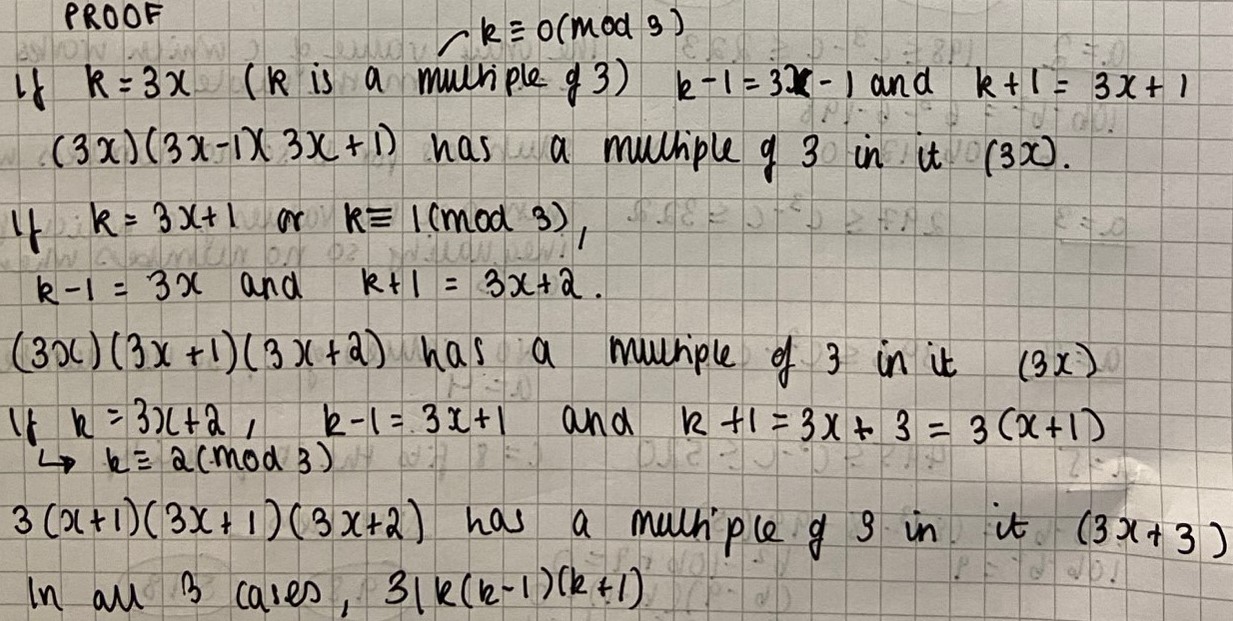 PROOF
k ≡ 0(mod 3)
If k = 3x (k is a multiple of 3) k-1 = 3x-1 and k+1 = 3x+1
(3x)(3x-1)(3x+1) has a multiple of 3 in it (3x).
If k = 3x+1 or k ≡ 1(mod 3),
k-1 = 3x and k+1 = 3x+2.
(3x)(3x+1)(3x+2) has a multiple of 3 in it (3x)
If k = 3x+2, k-1 = 3x+1 and k+1 = 3x+3 = 3(x+1)
↳ k ≡ 2(mod 3)
3(x+1)(3x+1)(3x+2) has a multiple of 3 in it (3x+3)
In all 3 cases, 3|k(k-1)(k+1)